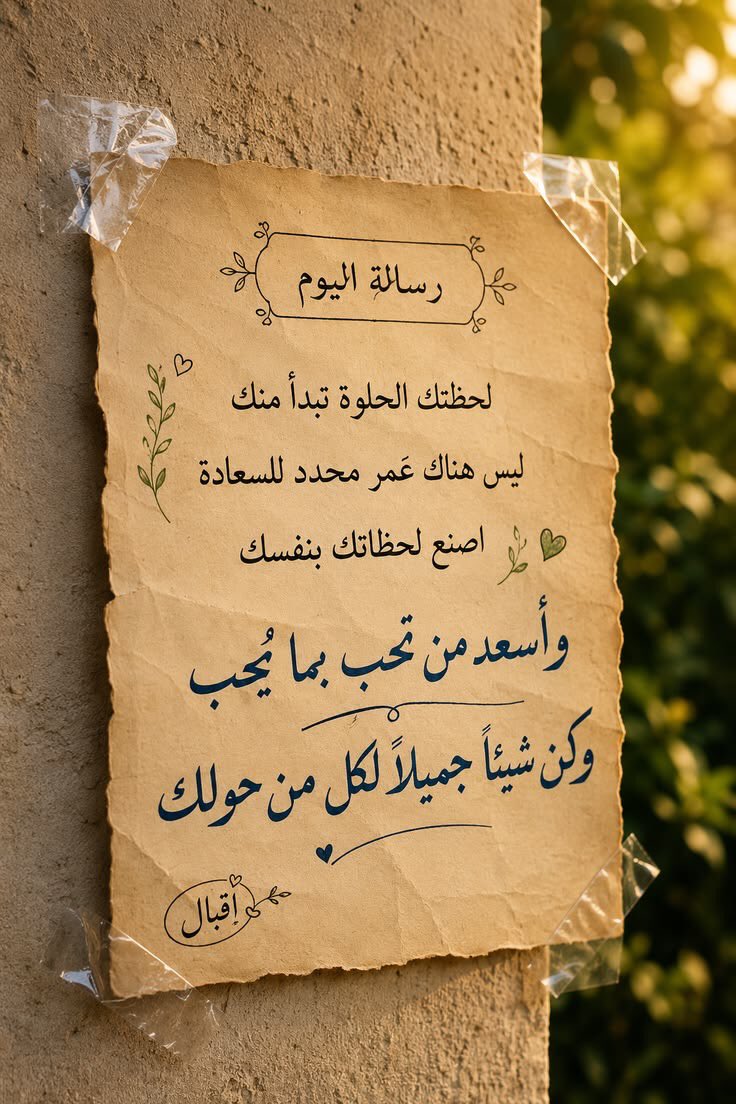 رسالة اليوم
لحظتك الحلوة تبدأ منك
ليس هناك عَمر محدد للسعادة
اصنع لحظاتك بنفسك
وأسعد من تحب بما يُحب
وكن شيئاً جميلاً لكل من حولك
إقبال